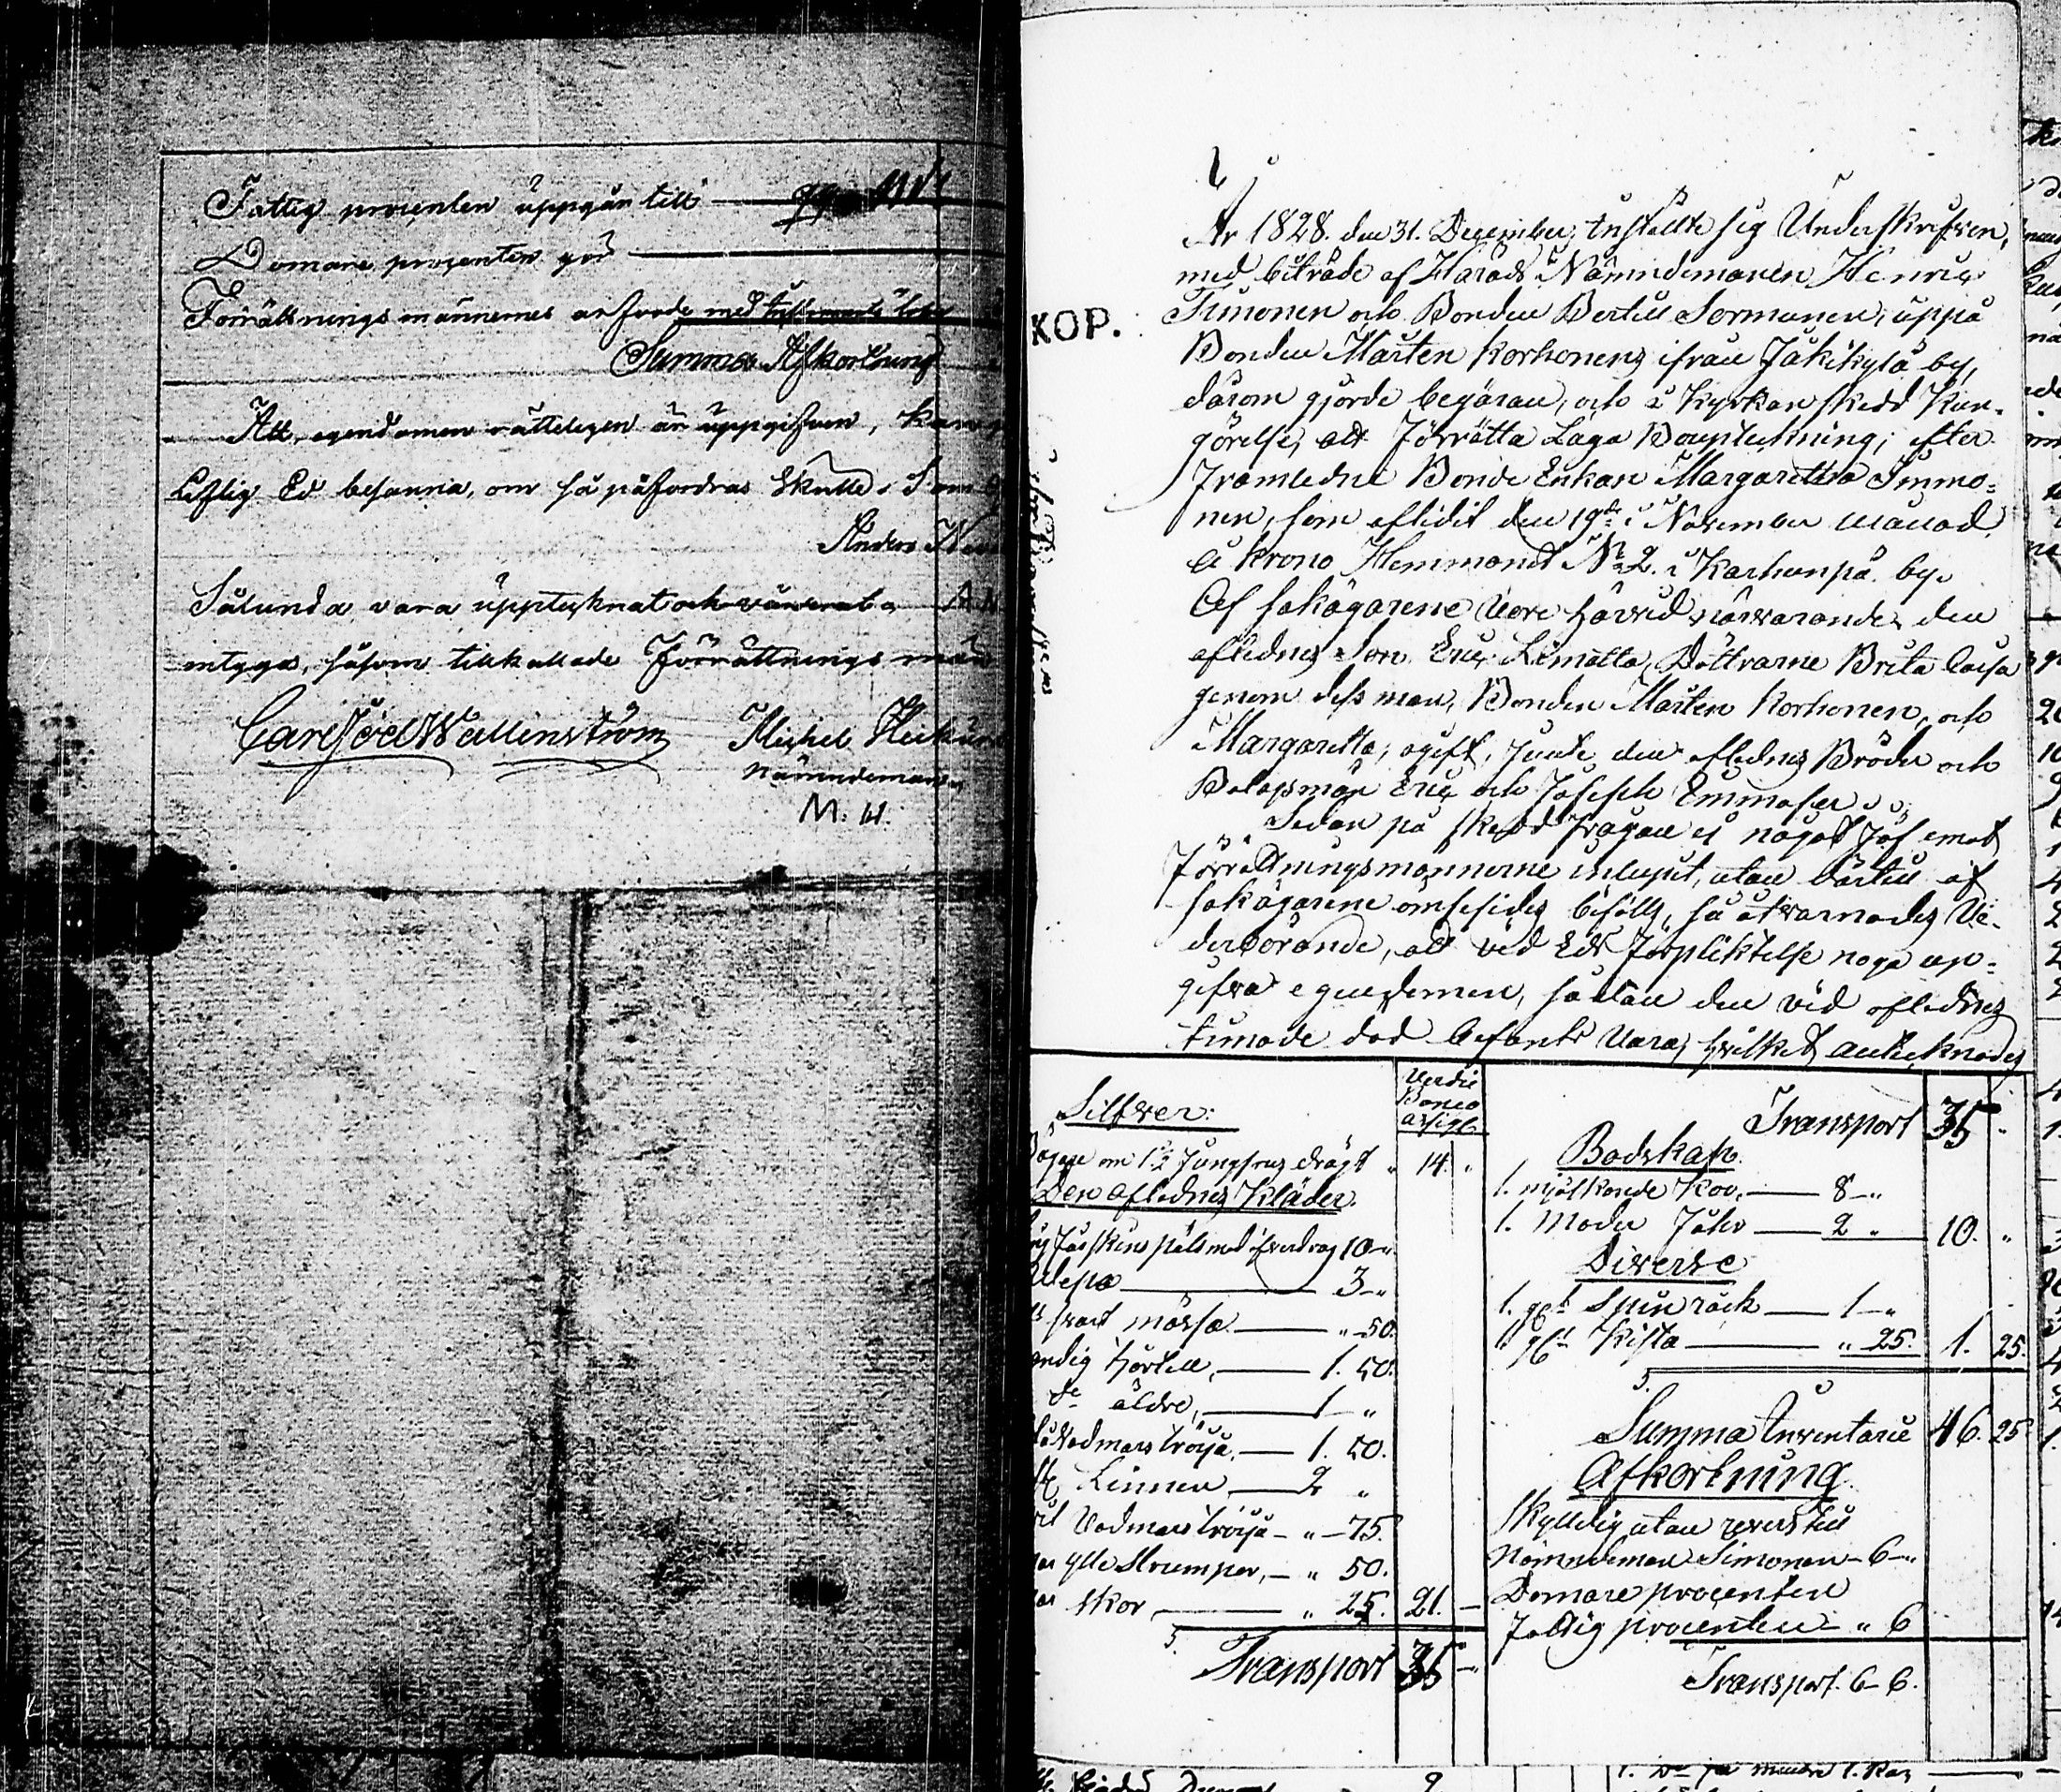 Fattig procenten uppgår till
Domare procenten gör
Förrättnings männernes arfvode med
Summa Afkortning
Att egendomen rätteligen är uppgifven, kan
Liflig Ed besanna, om så påfordras skulle; Som
Anders
Sålunda vara upptecknat och värderat
intyga, såsom tillkallade Förrättnings män
Carl Joel Wallenström Michel
Nämndeman
M. H.
KOP.
År 1828. den 31. December, instälte sig Underskrifven,
med biträde af Härads Nämndemannen Henric
Simonen och Bonden Bertill Sormunen, uppå
Bonden Mårten Korhonens ifrån Jäkikylä by,
därom gjorde begäran, och i Kyrkan skedd Kun-
görelse, att förrätta Laga Bouptekning; efter
framledne Bonde Enkan Margaretha Immo-
nen, som aflidit den 19de i November månad
å Krono Hemmanet No 2. i Karhunpä by.
Af sakägarene vore härvid närvarande, den
aflednes Son Eric Limatta, Döttrarne Brita Caisa
genom dess man, Bonden Mårten Korhonen, och
Margaretta, ogift, samt den aflednes Bröder och
Bolagsmän Eric och Joseph Immoser
Sedan på skedd frågan ej något Jäf emot
Förrättningsmännerne inlupit, utan bårtill af
sakägarene omsesides bifölls, så åtvarnades Ve-
derbörande, att vid Eds Förpliktelse noga up-
gifva egendomen, sådan den vid aflednes
timade död befants vara, hvilket anteknades
Silfver: Verdie Banco assign.
Bägare om 1 1/2 Jungfrus drägt " 14. "
Den aflednes Kläder.
Fårskins päls med öfverdrag 10 - "
3 - "
svart mössa " - 50.
Kortell, 1. 50.
do äldre, 1 - "
Vadmars tröija, 1. 50.
Linnen 2 "
Vadmars tröija - " - 75.
ylle Strumper, - " 50.
skor " 25. 21. -
5. Transport 35 - "
Transport 35 "
Bodskap.
1. mjölkande Koo, 8 - "
1. Moder Fåhr 2 " 10. "
Diverse
1. gl. Spin räck 1 - "
1 gl. Kista " 25. 1. 25.
5.
Summa Inventarie 46. 25
Afkortning
Skylldig utan revers till
Nämndeman Simonen - 6 - "
Domare procenten
Fattig procenten - " 6
Transport. 6 - 6.